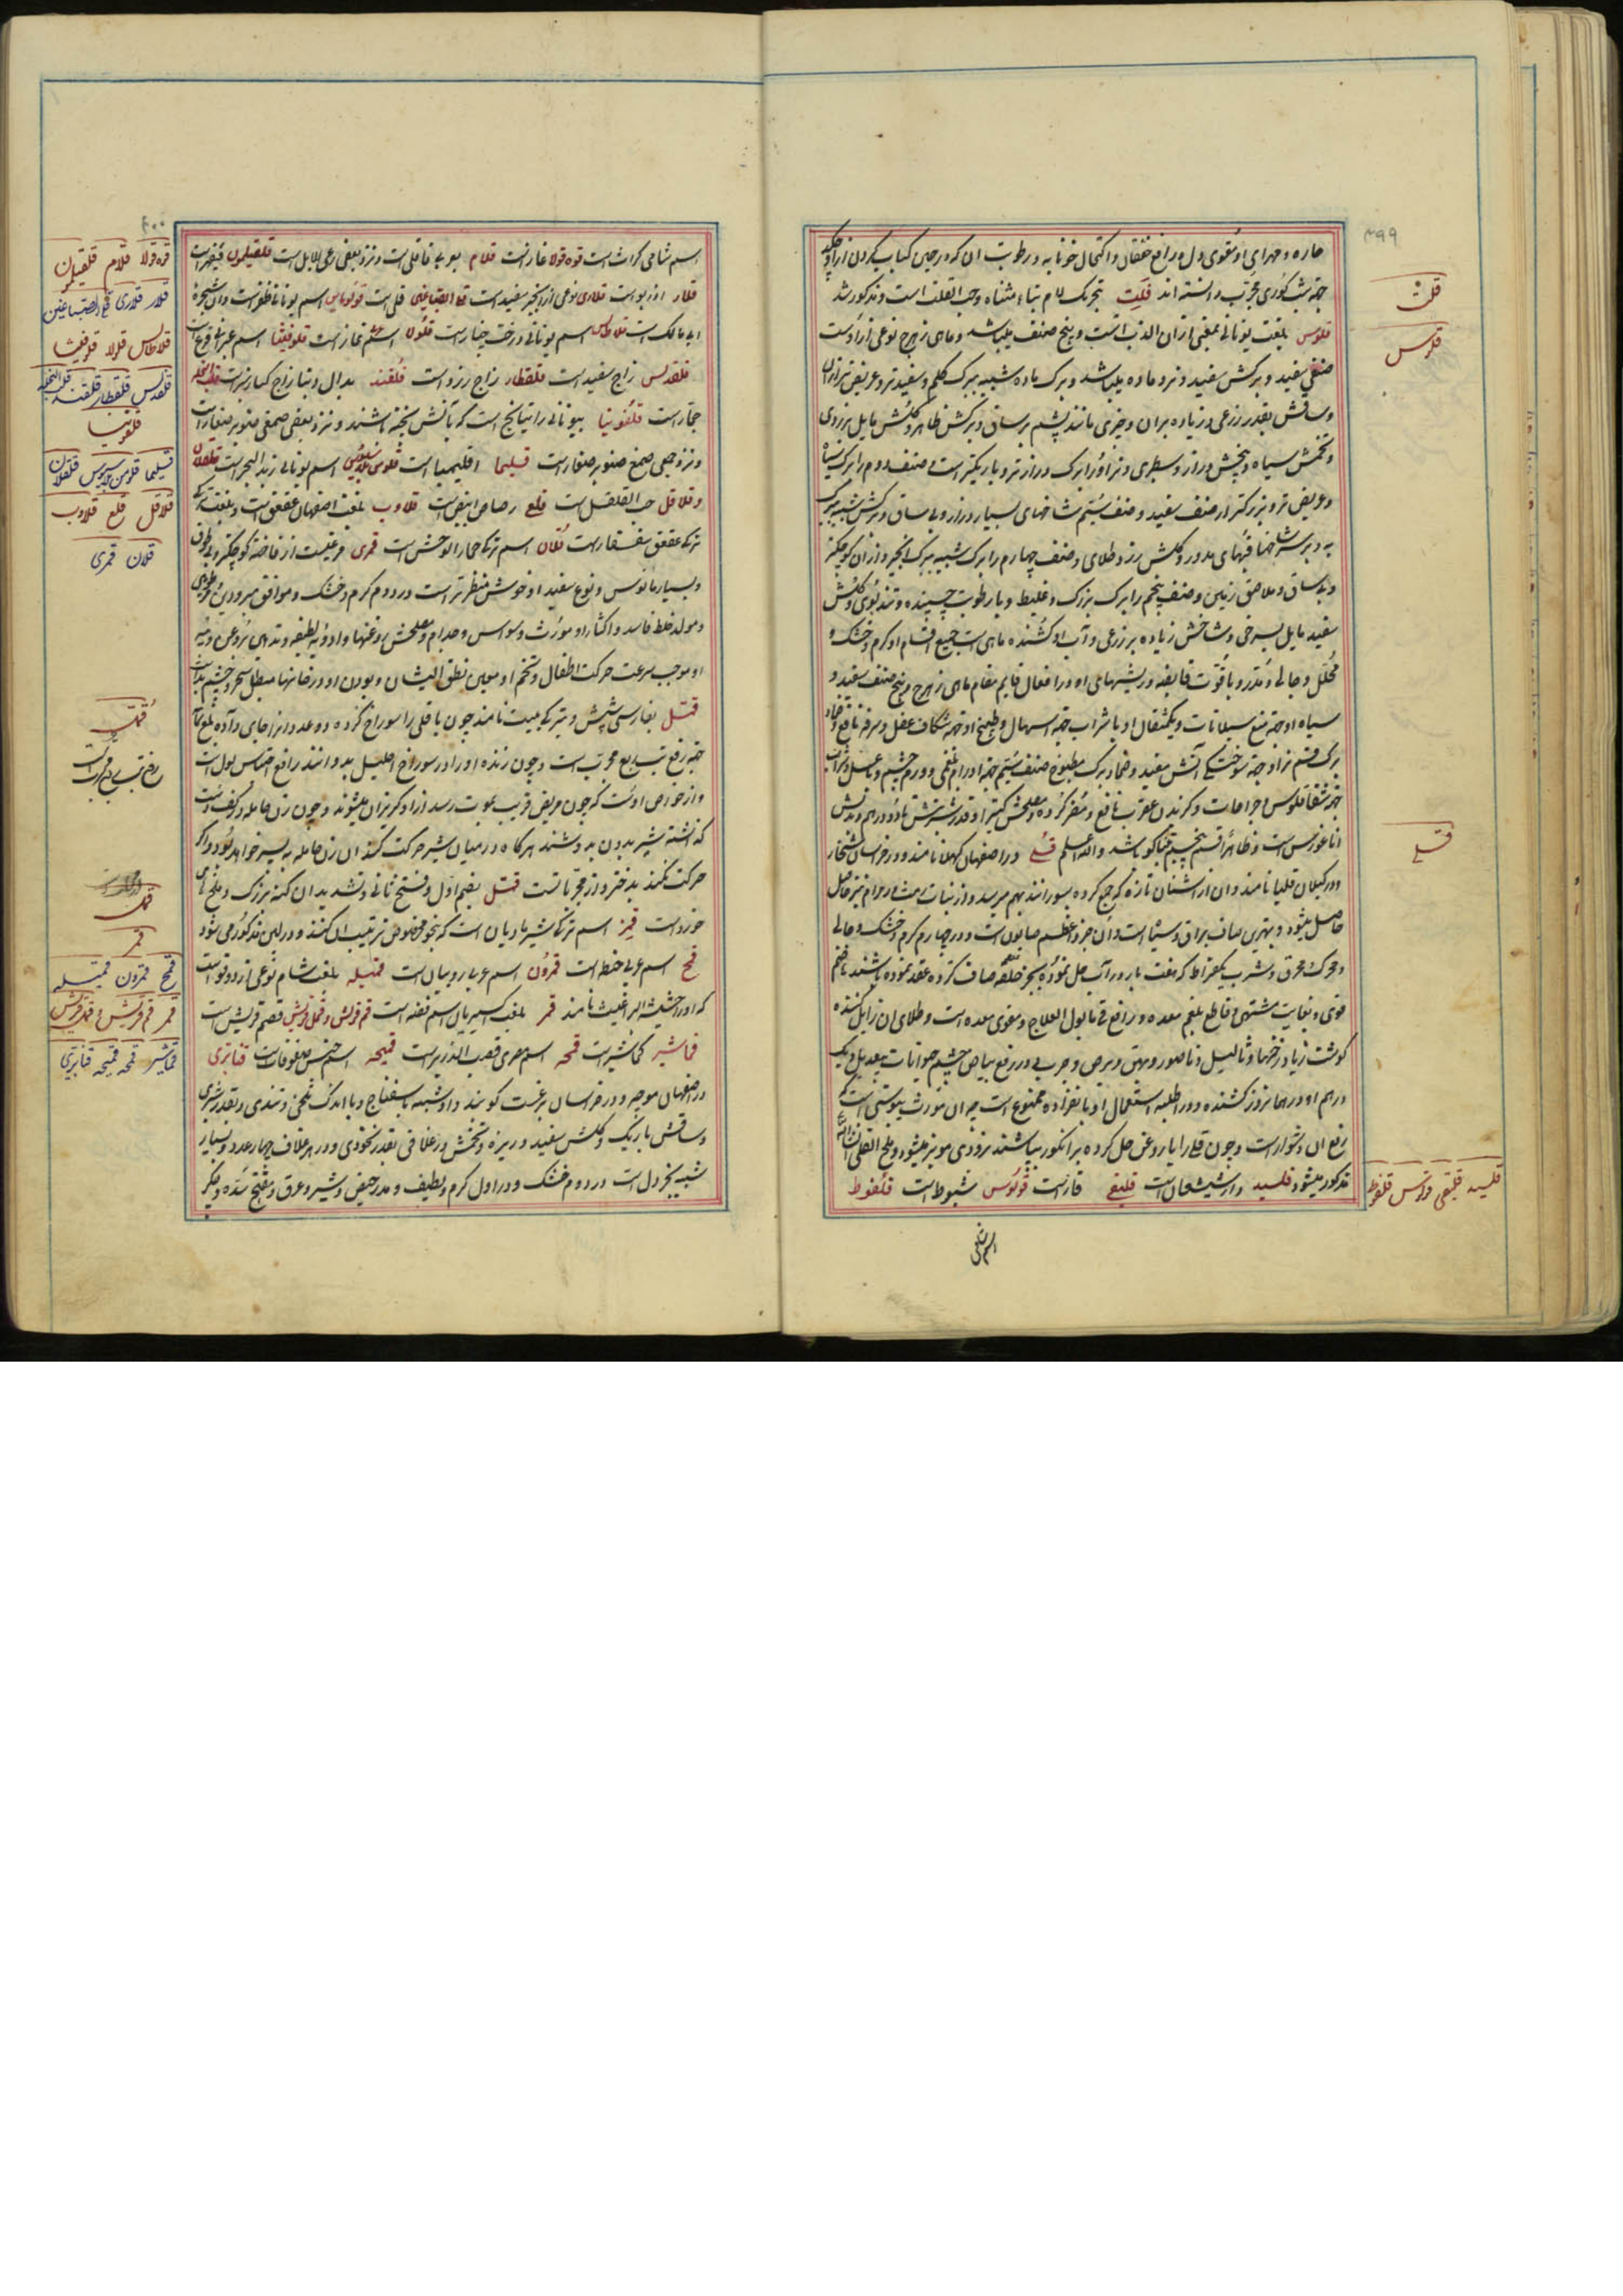 ۳۹۹
حاره و جهرای او مقوی دل و رافع خفقان و اکتحال خونابه و رطوبت ان که در حین کباب کردن ازو چکد
جهة شب کوری مجرب دانسته اند قلت بتحریک لام بتاء مثناه وحب القلت است و مذکور شد
بلغت یونانی بمعنی اذان الدب است و پنج صنف میباشد و ماهی زهرج نوعی ازوست
صنفی سفید و برکش سفید و نر و ماده میباشد و برک ماده شبیه ببرک کلم و سفیدتر و عریض تر از ان
وساقش بقدر زرعی و زیاده بران و چیزی مانند پشم بر ساق و برکش ظاهر و کلش مایل بزردی
وتخمش سیاه و بیخش دراز و سطبری و نر او را برک درازتر و باریکتر است و صنف دوم را برک سیاه
و عریض تر و بزرکتر از صنف سفید و صنف سیم شاخهای بسیار دراز و بی ساق و برکش شبیه ببرک
به و بر سر شاخها قبهای مدور و کلش زرد طلای و صنف چهارم را برک شبیه ببرک انجیر و از ان کوچکتر
و بی ساق و ملاصق زمین و صنف پنجم را برک بزرک و غلیظ و با رطوبت چسپنده و تند بوی و کلش
سفید مایل بسرخی و شاخش زیاده بر زرعی و آب او کشنده ماهی است جمیع اقسام او کرم و خشک و
محلل و جالی و مخدر و با قوت قابضه و ریشهای او در افعال قایم مقام ماهی زهرج و بیخ صنف سفید و
سیاه او جهة منع سیلانات و یکمثقال او با شراب جهة اسهال و طبیخ او جهة شکاف عضل و سرفه نافع و ضماد
برک قسم نر او جهة سوختکی آتش مفید و ضماد برک مطبوخ صنف سیم جهة اورام بلغمی و ورم چشم و با عسل و شراب
جهة شقاقلوس و جراحات و کزندن عقرب نافع و مضر کرده و مصلحش کتیرا و قدر شربتش تا دو درهم و بدلش
اناغورس است و ظاهرا قسم پنجم تنباکو باشد والله اعلم قلی و در اصفهان کهلا نامند و در خراسان شخار
و در کیلان قلیا نامند و ان از اشنان تازه که جمع کرده بسوزانند بهم میرسد و از نبات رمث و رمرام نیز حاصل
حاصل میشود و بهترین صاف براق و سیاه است و ان جزو اعظم صابون است و در چهارم کرم و خشک و جالی
و محرک و محرق و شرب یکقیراط که هفت بار در آب حل نموده صاف کرده عقد نموده باشند هاضم
قوی و بغایت مشتهی و قاطع بلغم معده و رافع قی مابول العلاج و مقوی معده است و طلای ان زایل کننده
کوشت زیاد زخمها و ثالیل و ناصور و بهق و برص و جرب و در رفع بیاض چشم حیوانات بیعدیل و یک
درهم او در همانروز کشنده و در اطلیه استعمال او بانفراده ممنوع است چه ان مورث یبوستی است که
رفع ان دشوار است و چون قلی را با روغن حل کرده بر انکور بپاشند بزودی مویز میشود و ملح القلی
مذکور میشود قلسید دارشیشعان است قلیقی قاز است قولوس شبوط است قلفوط
اسم نبطی
قلت
قلومس
قلی
قلسید قلیقی قولوس قلفوط
۴۰۰
اسم شامی کراث است قوه قولا غاریست قلام بعربی قاقلی است و نزد بعضی رعی الابل است قلقیلون
قلار اذربواست قلاری نوعی از انجیر سفید است قلی الصباغین قلی است اسم یونانی
است قلاطاس اسم یونانی درخت چنار است
قلقدیس زاج سفید است قلقطار زاج زرد است قلقند بدال و بتا زاج کبار نبز است
جمار است قلفونیا بیونانی راتیانج است که بآتش پخته باشند و نزد بعضی صمغ صنوبر صغار است
و نزد جمعی صمغ صنوبر صغار است قلیمیا اقلیمیا است اسم یونانی زبد البحر است قلقلان
و قلاقل حب القلقل است قلع رصاص ابیض است قلاوب بلغت اصفهان عقعق است و بلغت
ترکی عقعق سقسقار است قلان اسم ترکی حمار الوحش است قمری مرغیست از فاخته کوچکتر و بی طوق
و بسیار مانوس و نوع سفید او خوش منظرتر است در دوم کرم و خشک و موافق مبرودین
و مولد خلط فاسد و اکثار او مورث وسواس و جذام و مصلحش روغنها و ادویه لطیفه و تدهین بروغن دنبه
او موجب سرعت حرکت اطفال و تخم او معین نطق ایشان و بودن او در خانها مبطل سحر و چشم بد است
قمل بفارسی شپش و بترکی بیت نامند چون باقلی را سوراخ کرده دو عدد از ان جای داده بلع نمایند
جهة رفع تب ربع مجرب است و چون زنده او را در سوراخ احلیل بدوانند رافع احتباس بول است
و از خواص اوست که چون مریض قریب بموت رسد از او کریزان میشوند و چون زن حامله در کف دست
کذاشته شیر بدون بدوشند هرکاه در میان شیر حرکت کند ان زن حامله به پسر خواهد بود و اکر
حرکت نکند بدختر و از مجربانست قمل بضم اول و فتح ثانی و تشدید ان کنه بزرک و ملخ
خورد است قمز اسم ترکی شیر مادیان است که بنحو مخصوص ترتیب ان کنند و در لبن مذکور می شود
قمح اسم عربی حنطه است قمرون اسم عربی روبیان است قمیله بلغت شام نوعی از دوقوست
که او را حشیشة البراغیث نامند قمر بلغت اکسیریان اسم فضه است قم قریش و قمل قریش قضم قریش است
قماشیر کماشیر است قمحه اسم مصری قصب الذریره است قمیحه اسم جنس سفوفات است قنابری
در اصفهان موجه و در خراسان برغست کویند و او شبیه باسفناج و با اندک تلخی و تندی و بقدر شبری
و ساقش باریک و کلش سفید و ریزه و تخمش در غلافی بقدر نخودی و در هر غلاف چهار عدد و بسیار
شبیه بخردل است در دوم خشک و در اول کرم و لطیف و مدر حیض و شیر و عرق و مفتح سده
قوه قولا قلام قلقیلون
قلار قلاری قلی الصباغین
قلاطاس قلولا قلوفیثا
قلقدیس قلقطار قلقند قلب النخله
قلفونیا
قلیمیا قلقلان
قلاقل قلع قلاوب
قلان قمری
قمل
قمل
قمز
قمح قمرون قمیله
قمر قم قریش و قمل قریش
قماشیر قمحه قمیحه قنابری